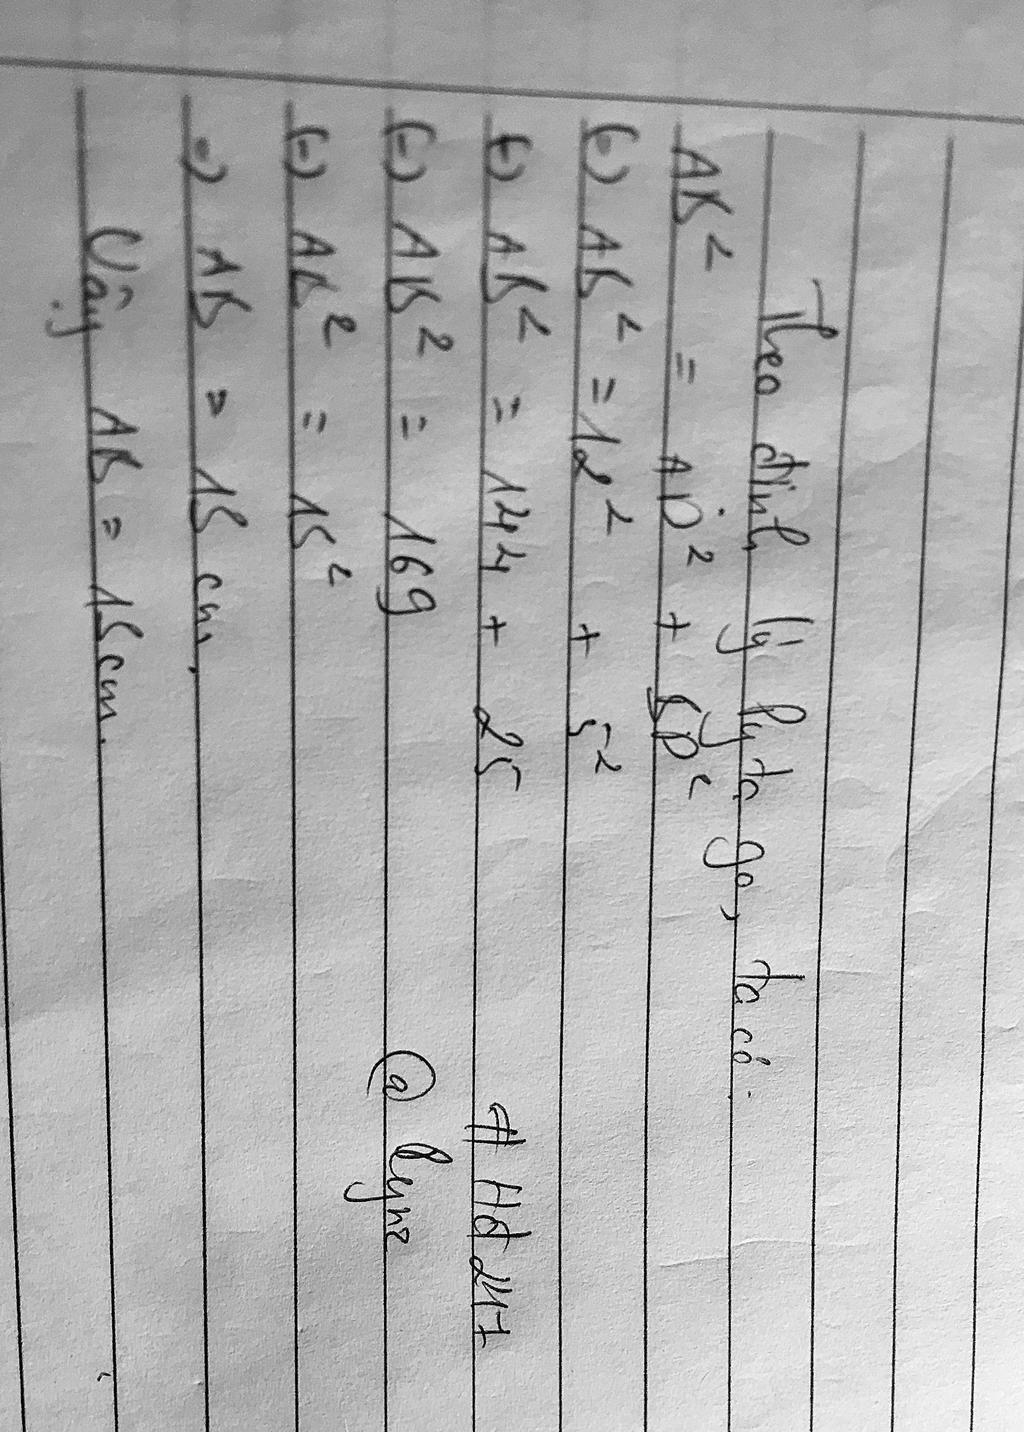 Theo định lý Pytago, ta có:
AB² = AD² + BD²
(=) AB² = 12² + 5²
(=) AB² = 144 + 25
(=) AB² = 169
(=) AB² = 15²
=) AB = 15 cm.
Vậy AB = 15 cm.
# Hđ 247
@ lynz